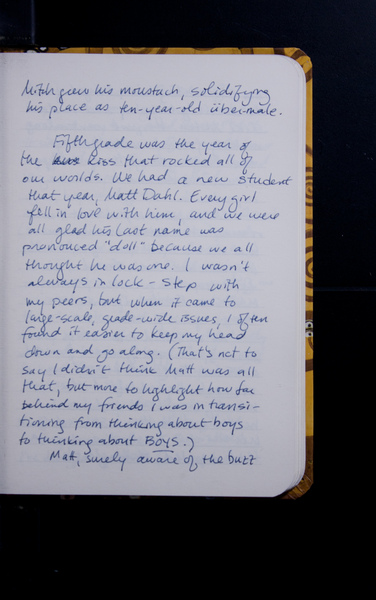 Mitch grew his moustach, solidifying
his place as ten-year-old über-male.
Fifth grade was the year of
the kiss that rocked all of
our worlds. We had a new student
that year, Matt Dahl. Every girl
fell in love with him, and we were
all glad his last name was
pronounced "doll" because we all
thought he was one. I wasn't
always in lock-step with
my peers, but when it came to
large-scale, grade-wide issues, I often
found it easier to keep my head
down and go along. (That's not to
say I didn't think Matt was all
that, but more to highlight how far
behind my friends I was in transi-
tioning from thinking about boys
to thinking about BOYS.)
Matt, surely aware of the buzz